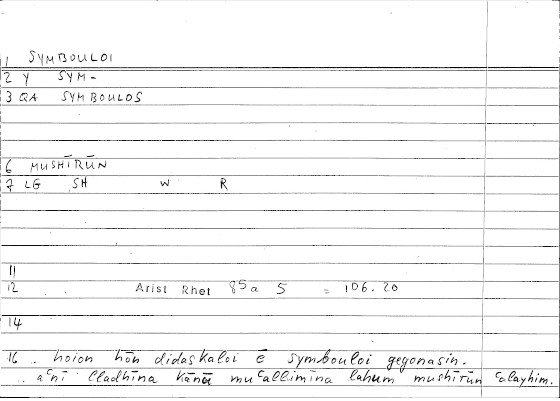 1 SYMBOULOI
2 Y SYM-
3 QA SYMBOULOS
6 MUSHĪRŪN
7 LG SH W R
11
12 Arist Rhet 85a 5 = 106.20
14
16 .. hoion hōn didaskaloi ē symbouloi gegonasin.
.. aʿnī lladhīna kānū muʿallimīna lahum mushīrūn ʿalayhim.